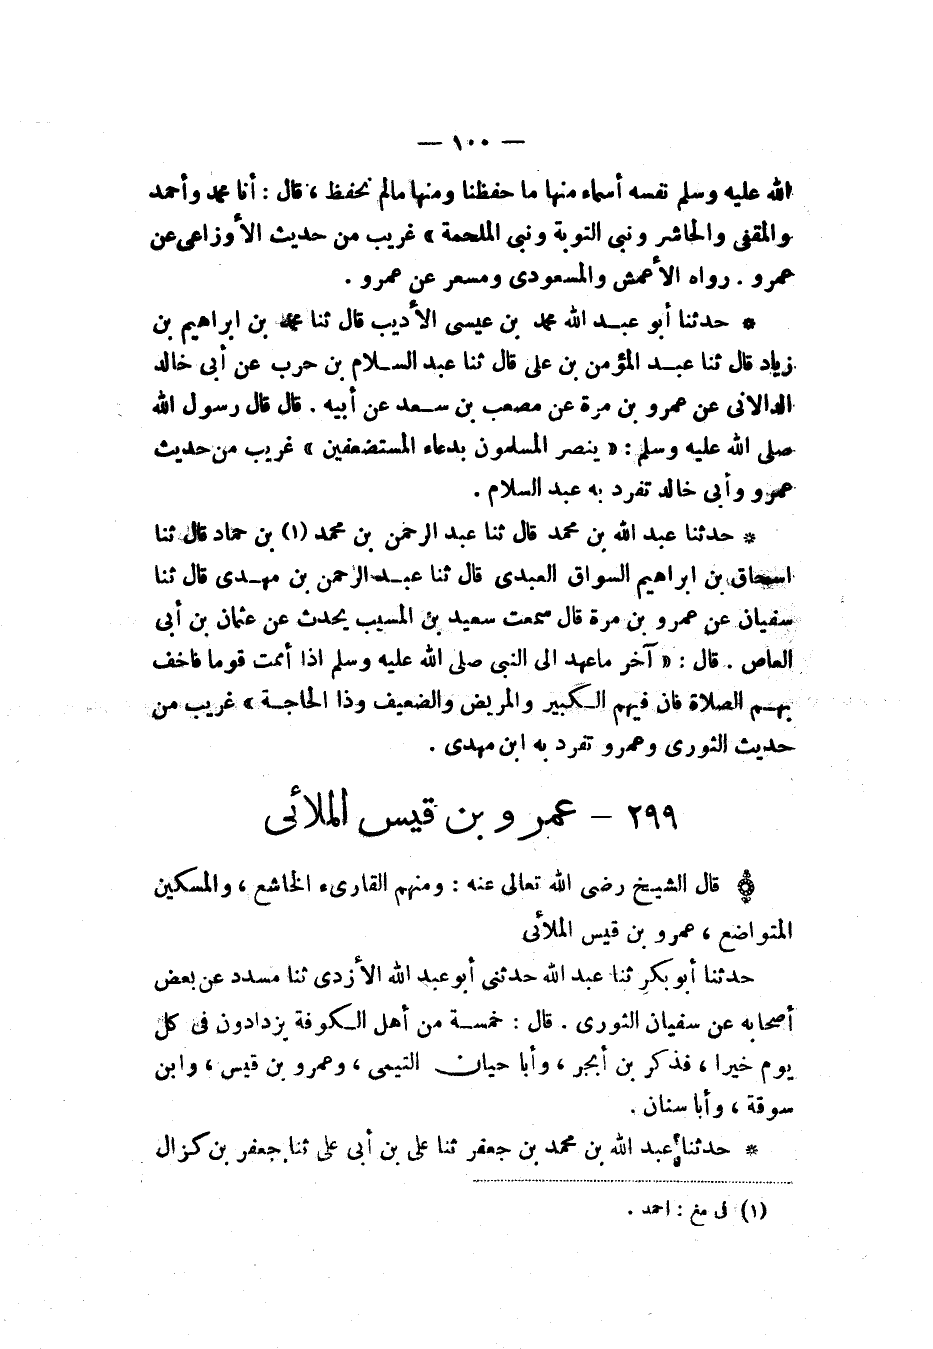 — ١٠٠ —
الله عليه وسلم نفسه أسماء منها ما حفظنا ومنها مالم نحفظ ، قال : أنا محمد وأحمد
والمقفى والحاشر ونبى التوبة ونبى الملحمة » غريب من حديث الأوزاعى عن
عمرو . رواه الأعمش والمسعودى ومسعر عن عمرو .
* حدثنا أبو عبد الله محمد بن عيسى الأديب قال ثنا محمد بن ابراهيم بن
زياد قال ثنا عبد المؤمن بن على قال ثنا عبد السلام بن حرب عن أبى خالد
الدالانى عن عمرو بن مرة عن مصعب بن سعد عن أبيه . قال قال رسول الله
صلى الله عليه وسلم : « ينصر المسلمون بدعاء المستضعفين » غريب من حديث
عمرو وأبى خالد تفرد به عبد السلام .
* حدثنا عبد الله بن محمد قال ثنا عبد الرحمن بن محمد (١) بن حماد قال ثنا
اسحاق بن ابراهيم السواق العبدى قال ثنا عبد الرحمن بن مهدى قال ثنا
سفيان عن عمرو بن مرة قال سمعت سعيد بن المسيب يحدث عن عثمان بن أبى
العاص . قال : « آخر ماعهد الى النبى صلى الله عليه وسلم اذا أممت قوما فاخف
بهم الصلاة فان فيهم الكبير والمريض والضعيف وذا الحاجة » غريب من
حديث الثورى وعمرو تفرد به ابن مهدى .
٢٩٩ – عمرو بن قيس الملائى
قال الشيخ رضى الله تعالى عنه : ومنهم القارىء الخاشع ، والمسكين
المتواضع ، عمرو بن قيس الملائى
حدثنا أبو بكر ثنا عبد الله حدثنى أبو عبد الله الأزدى ثنا مسدد عن بعض
أصحابه عن سفيان الثورى . قال : خمسة من أهل الكوفة يزدادون فى كل
يوم خيرا ، فذكر بن أبجر ، وأبا حيان التيمى ، وعمرو بن قيس ، وابن
سوقة ، وأبا سنان .
* حدثنا عبد الله بن محمد بن جعفر ثنا على بن أبى على ثنا جعفر بن كزال
(١) فى مغ : احمد .